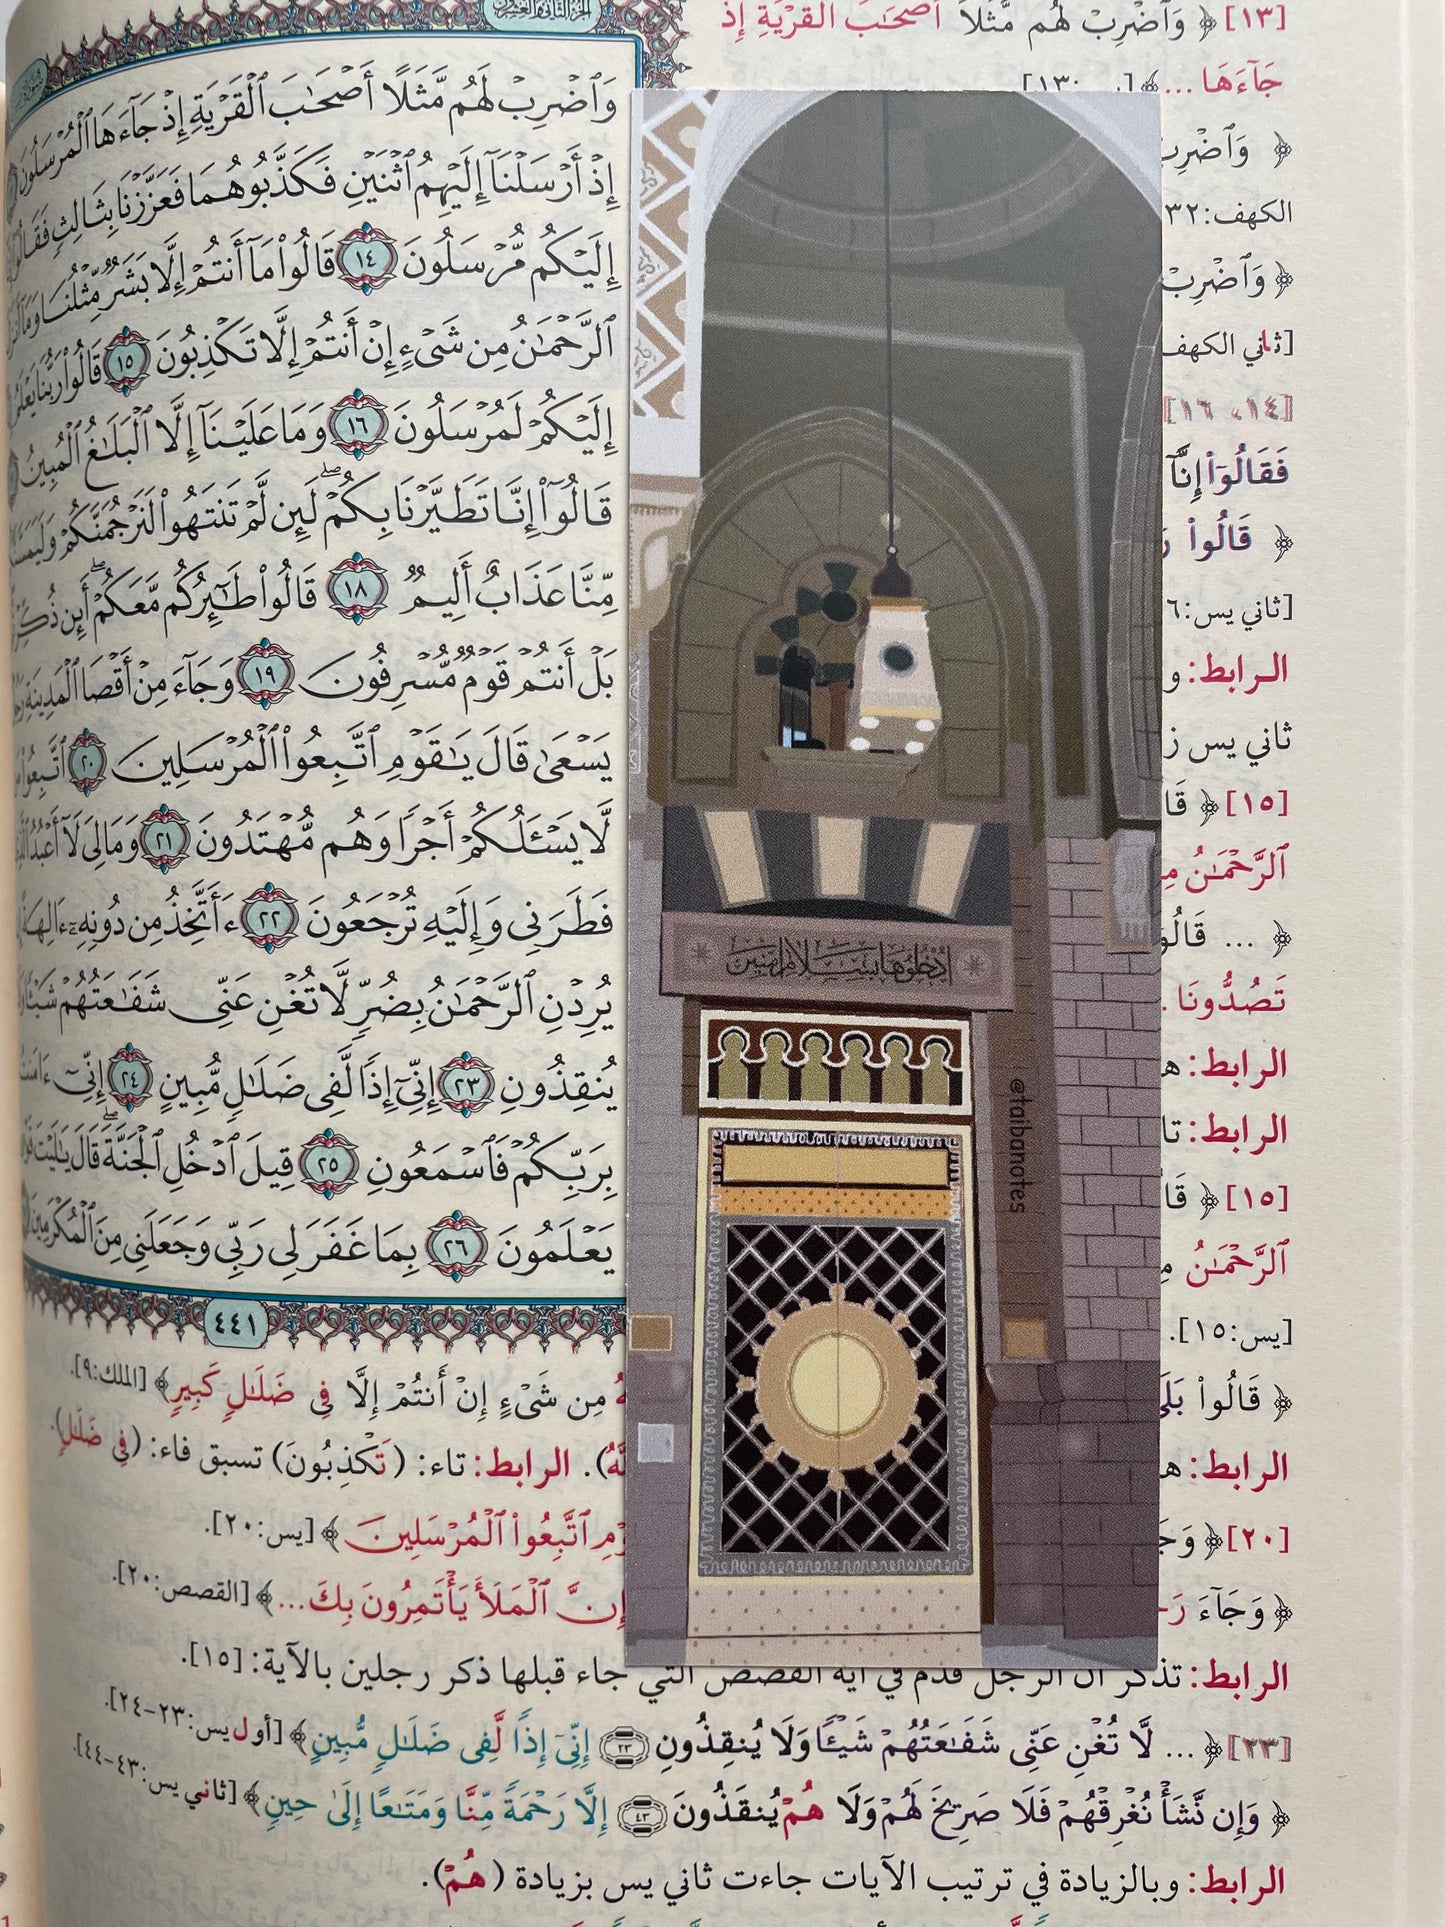 الجزء الثاني والعشرون
وَٱضْرِبْ لَهُم مَّثَلًا أَصْحَٰبَ ٱلْقَرْيَةِ إِذْ جَآءَهَا ٱلْمُرْسَلُونَ
إِذْ أَرْسَلْنَآ إِلَيْهِمُ ٱثْنَيْنِ فَكَذَّبُوهُمَا فَعَزَّزْنَا بِثَالِثٍ فَقَالُوٓا۟
إِلَيْكُم مُّرْسَلُونَ ١٤ قَالُوا۟ مَآ أَنتُمْ إِلَّا بَشَرٌ مِّثْلُنَا وَمَآ أَنزَلَ
ٱلرَّحْمَٰنُ مِن شَىْءٍ إِنْ أَنتُمْ إِلَّا تَكْذِبُونَ ١٥ قَالُوا۟ رَبُّنَا يَعْلَمُ
إِلَيْكُمْ لَمُرْسَلُونَ ١٦ وَمَا عَلَيْنَآ إِلَّا ٱلْبَلَٰغُ ٱلْمُبِينُ
قَالُوٓا۟ إِنَّا تَطَيَّرْنَا بِكُمْ ۖ لَئِن لَّمْ تَنتَهُوا۟ لَنَرْجُمَنَّكُمْ وَلَيَمَسَّنَّكُم
مِّنَّا عَذَابٌ أَلِيمٌ ١٨ قَالُوا۟ طَٰٓئِرُكُم مَّعَكُمْ ۚ أَئِن ذُكِّرْتُم
بَلْ أَنتُمْ قَوْمٌ مُّسْرِفُونَ ١٩ وَجَآءَ مِنْ أَقْصَا ٱلْمَدِينَةِ رَجُلٌ
يَسْعَىٰ قَالَ يَٰقَوْمِ ٱتَّبِعُوا۟ ٱلْمُرْسَلِينَ ٢٠ ٱتَّبِعُوا۟
لَّا يَسْـَٔلُكُمْ أَجْرًا وَهُم مُّهْتَدُونَ ٢١ وَمَا لِىَ لَآ أَعْبُدُ ٱلَّذِى
فَطَرَنِى وَإِلَيْهِ تُرْجَعُونَ ٢٢ ءَأَتَّخِذُ مِن دُونِهِۦٓ ءَالِهَةً
يُرِدْنِ ٱلرَّحْمَٰنُ بِضُرٍّ لَّا تُغْنِ عَنِّى شَفَٰعَتُهُمْ شَيْـًٔا
يُنقِذُونِ ٢٣ إِنِّىٓ إِذًا لَّفِى ضَلَٰلٍ مُّبِينٍ ٢٤ إِنِّىٓ ءَامَنتُ
بِرَبِّكُمْ فَٱسْمَعُونِ ٢٥ قِيلَ ٱدْخُلِ ٱلْجَنَّةَ ۖ قَالَ يَٰلَيْتَ قَوْمِى
يَعْلَمُونَ ٢٦ بِمَا غَفَرَ لِى رَبِّى وَجَعَلَنِى مِنَ ٱلْمُكْرَمِينَ
٤٤١
[١٣] ﴿ وَٱضْرِبْ لَهُم مَّثَلًا أَصْحَٰبَ ٱلْقَرْيَةِ إِذْ
جَآءَهَا ... ﴾ [يس:١٣]
﴿ وَٱضْرِبْ
الكهف:٣٢
﴿ وَٱضْرِبْ
[ثاني الكهف
[١٤، ١٦]
فَقَالُوٓا۟ إِنَّآ
﴿ قَالُوا۟
[ثاني يس:٦
الرابط: و
ثاني يس
[١٥] ﴿
ٱلرَّحْمَٰنُ
﴿ ... قَالُو
تَصُدُّونَا
الرابط:
الرابط: تا
[١٥] ﴿
ٱلرَّحْمَٰنُ
[يس:١٥].
﴿ قَالُوا۟ بَلَىٰ
مِن شَىْءٍ إِنْ أَنتُمْ إِلَّا فِى ضَلَٰلٍ كَبِيرٍ ﴾ [الملك:٩].
الرابط:
الرابط: تاء: (تَكْذِبُونَ) تسبق فاء: (فِى ضَلَٰلٍ).
[٢٠] ﴿ وَجَ
ٱتَّبِعُوا۟ ٱلْمُرْسَلِينَ ﴾ [يس:٢٠].
﴿ وَجَآءَ
إِنَّ ٱلْمَلَأَ يَأْتَمِرُونَ بِكَ... ﴾ [القصص:٢٠].
الرابط: تذكر أن الرجل قدم في آية القصص التي جاء قبلها ذكر رجلين بالآية: [١٥].
[٢٣] ﴿ ... لَّا تُغْنِ عَنِّى شَفَٰعَتُهُمْ شَيْـًٔا وَلَا يُنقِذُونِ ٢٣ إِنِّىٓ إِذًا لَّفِى ضَلَٰلٍ مُّبِينٍ ﴾ [أول يس:٢٣-٢٤].
﴿ وَإِن نَّشَأْ نُغْرِقْهُمْ فَلَا صَرِيخَ لَهُمْ وَلَا هُمْ يُنقَذُونَ ٤٣ إِلَّا رَحْمَةً مِّنَّا وَمَتَٰعًا إِلَىٰ حِينٍ ﴾ [ثاني يس:٤٣-٤٤].
الرابط: وبالزيادة في ترتيب الآيات جاءت ثاني يس بزيادة (هُمْ).
ادخلوها بسلام آمنين
@taibanotes